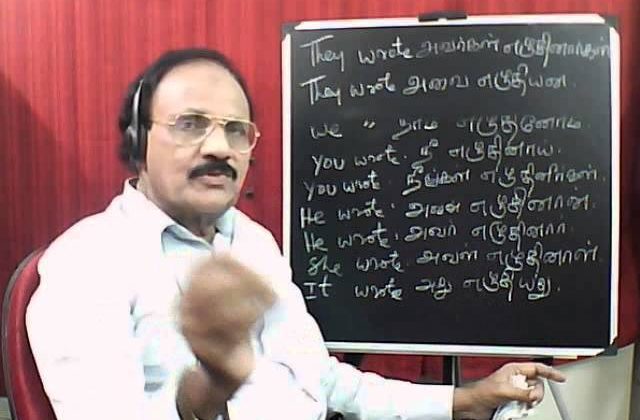 They wrote அவர்கள் எழுதினார்கள்
They wrote அவை எழுதியன.
we " நாம் எழுதினோம்.
you wrote. நீ எழுதினாய்.
you wrote. நீங்கள் எழுதினீர்கள்.
He wrote. அவன் எழுதினான்.
He wrote. அவர் எழுதினார்.
She wrote. அவள் எழுதினாள்.
It wrote அது எழுதியது.